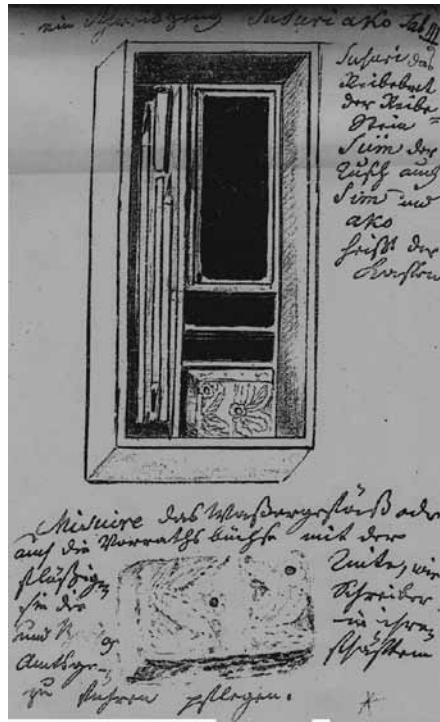 ein Schreibzeug Susuri ako Tab III
Susuri das
Reibebret
der Reibe=
Stein
Süm der
Tusch auch
Sim und
ako
heißt der
Kasten
Misuire das Waßergefäß oder
auch die Vorrathsbüchse mit der
flüßigen Tinte, wie
sie die Schreiber
und in ihren
Amtsge= schäften
zu führen pflegen.